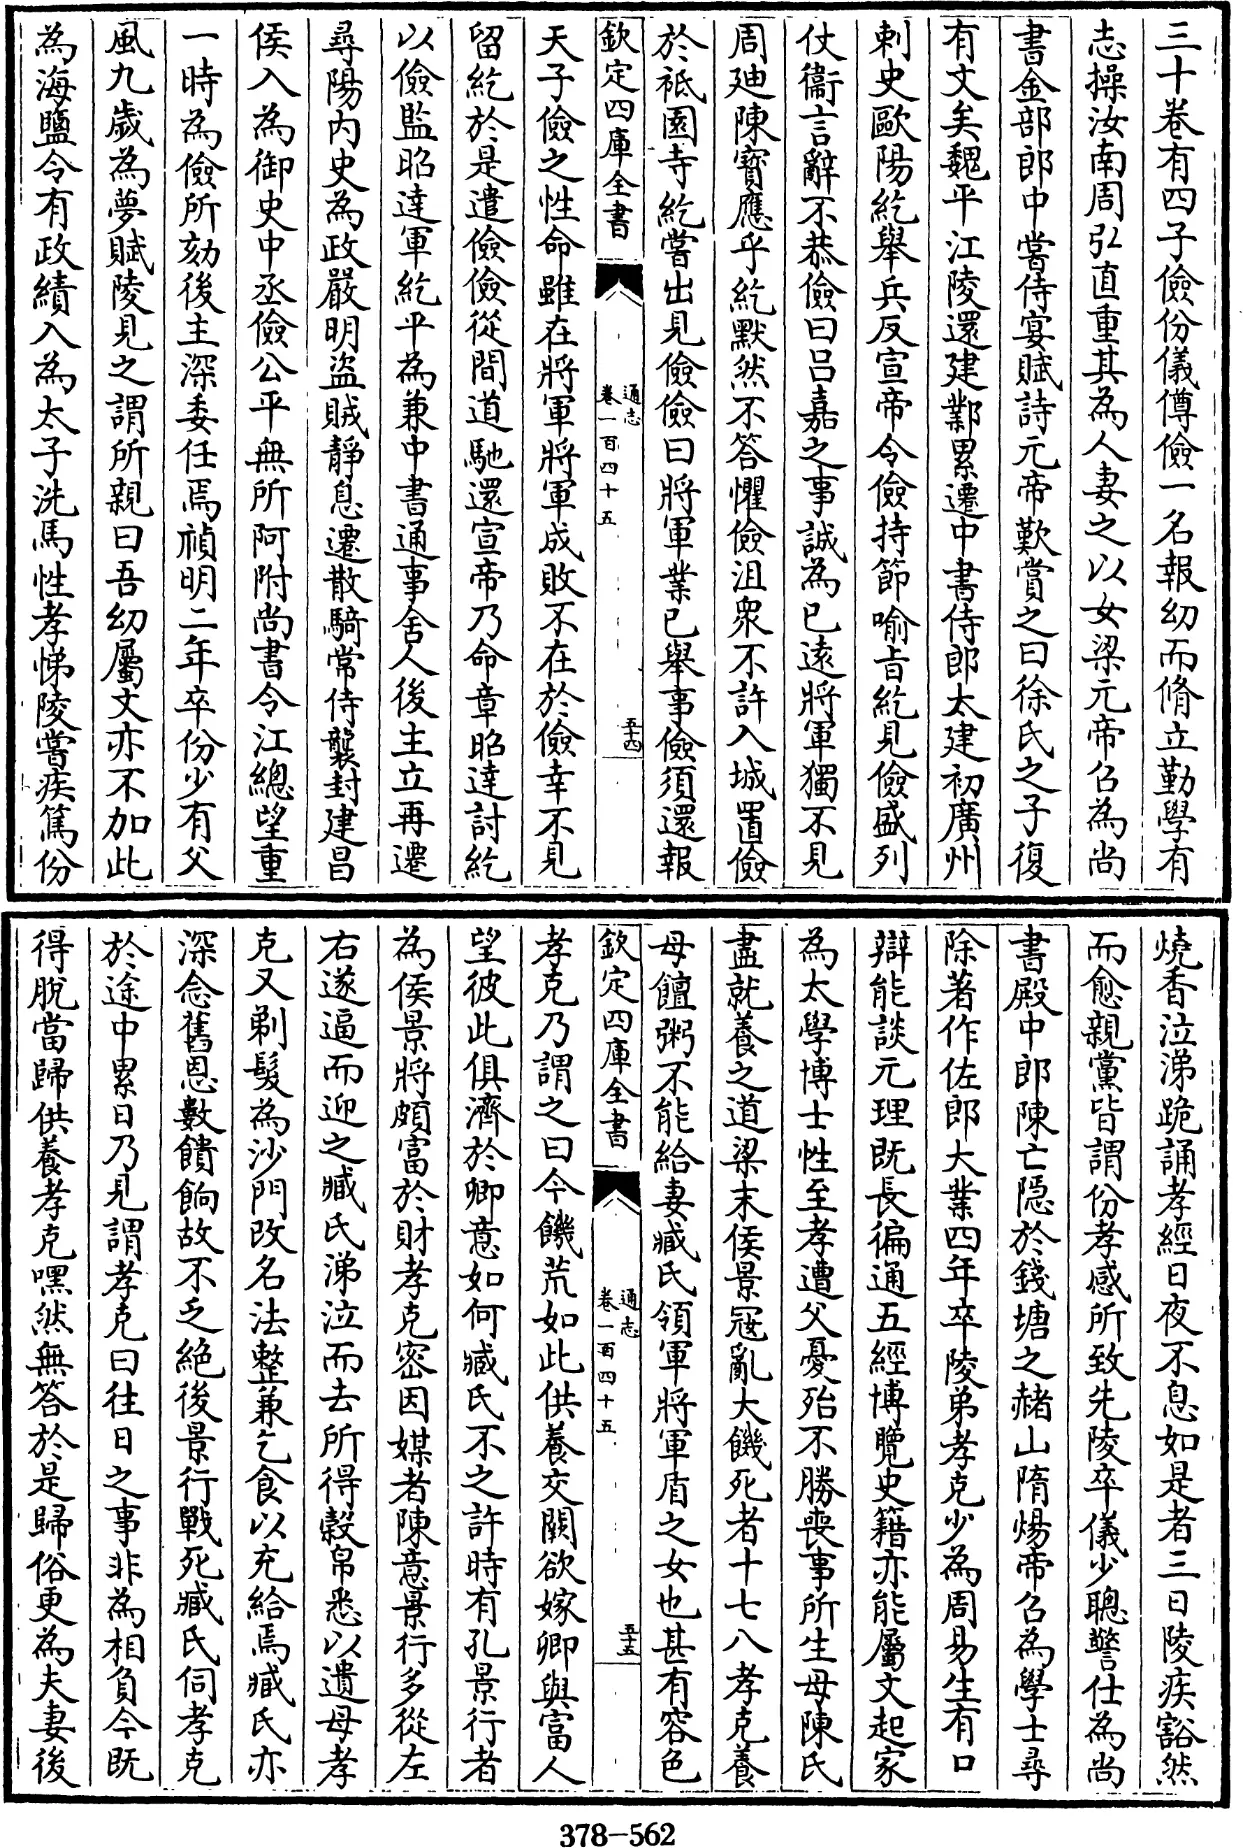 三十卷有四子儉份儀僔儉一名報幼而脩立勤學有
志操汝南周弘直重其為人妻之以女梁元帝召為尚
書金部郎中嘗侍宴賦詩元帝歎賞之曰徐氏之子復
有文矣魏平江陵還建鄴累遷中書侍郎太建初廣州
刺史歐陽紇舉兵反宣帝令儉持節喻旨紇見儉盛列
仗衞言辭不恭儉曰吕嘉之事誠為已遠將軍獨不見
周廸陳寳應乎紇默然不答懼儉沮衆不許入城置儉
於祇園寺紇嘗出見儉儉曰將軍業已舉事儉須還報
欽定四庫全書
通志
卷一百四十五
五十四
天子儉之性命雖在將軍將軍成敗不在於儉幸不見
留紇於是遣儉儉從間道馳還宣帝乃命章昭達討紇
以儉監昭達軍紇平為兼中書通事舍人後主立再遷
尋陽内史為政嚴明盜賊靜息遷散騎常侍襲封建昌
侯入為御史中丞儉公平無所阿附尚書令江總望重
一時為儉所劾後主深委任焉禎明二年卒份少有父
風九歲為夢賦陵見之謂所親曰吾幼屬文亦不加此
為海鹽令有政績入為太子洗馬性孝悌陵嘗疾篤份
燒香泣涕跪誦孝經日夜不息如是者三日陵疾豁然
而愈親黨皆謂份孝感所致先陵卒儀少聰警仕為尚
書殿中郎陳亡隱於錢塘之赭山隋煬帝召為學士尋
除著作佐郎大業四年卒陵弟孝克少為周易生有口
辯能談元理既長徧通五經博覽史籍亦能屬文起家
為太學博士性至孝遭父憂殆不勝喪事所生母陳氏
盡就養之道梁末侯景冦亂大饑死者十七八孝克養
母饘粥不能給妻臧氏領軍將軍盾之女也甚有容色
欽定四庫全書
通志
卷一百四十五
五十五
孝克乃謂之曰今饑荒如此供養交闕欲嫁卿與富人
望彼此俱濟於卿意如何臧氏不之許時有孔景行者
為侯景將頗富於財孝克密因媒者陳意景行多從左
右遂逼而迎之臧氏涕泣而去所得穀帛悉以遺母孝
克又剃髮為沙門改名法整兼乞食以充給焉臧氏亦
深念舊恩數饋餉故不乏絶後景行戰死臧氏伺孝克
於途中累日乃見謂孝克曰往日之事非為相負今既
得脫當歸供養孝克嘿然無答於是歸俗更為夫妻後
378-562